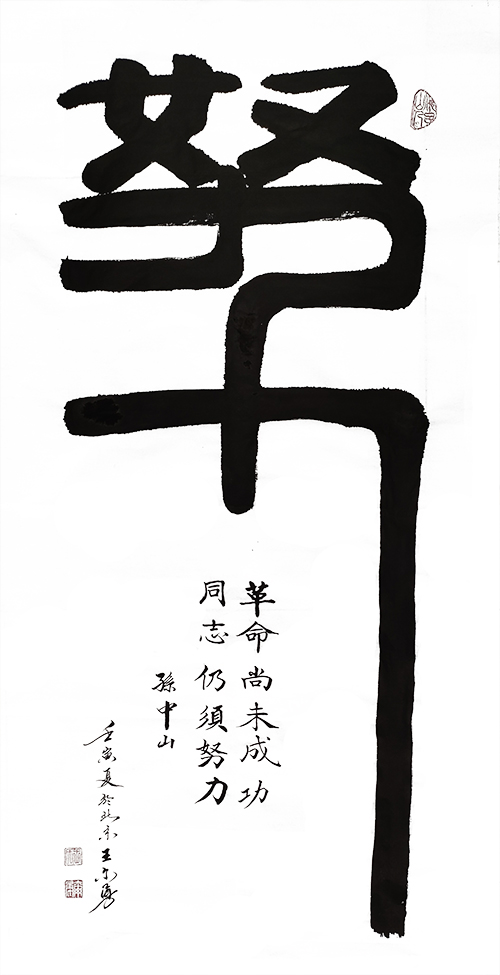 努
革命尚未成功
同志仍須努力
孫中山
壬寅夏於北京王